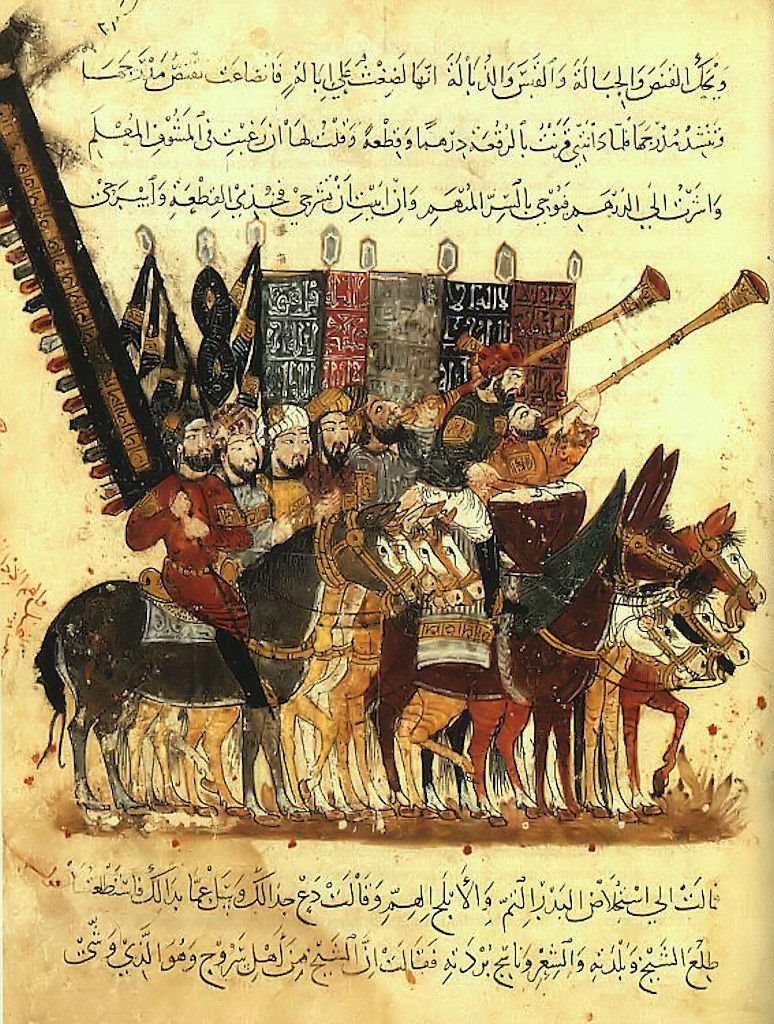 وَيْحَكِ القَنَصَ وَالحِبَالَةَ وَالقَبَسَ وَالذُّبَالَةَ اِنَّهَا لَضِغْثٌ عَلَى اِبَالَةٍ فَانْصَاعَتْ تَقْتَصُّ مَدْرَجَهَا
وَتَنْشُدُ مُدْرَجَهَا فَلَمَّا دَانَتْنِي قَرَنْتُ بِالرُقْعَةِ دِرْهَمًا وَقِطْعَةً وَقُلْتُ لَهَا اِنْ رَغِبْتِ فِي المَشُوفِ المُعْلَمِ
وَاَشَرْتُ اِلَى الدِرْهَمِ فَبُوحِي بِالسِّرِّ المُبْهَمِ وَاِنْ اَبَيْتِ اَنْ تَشْرَحِي فَخُذِي القِطْعَةَ وَاسْرَحِي
لا اله الا
مَالَتْ اِلَى اسْتِخْلَاصِ البَدْرِ التِمِّ وَالاَبْلَجِ الهِمِّ وَقَالَتْ دَعْ جِدَالَكَ وَسَلْ عَمَّا بَدَا لَكَ فَاسْتَطْلَعْتُهَا
طِلْعَ الشَّيْخِ وَبَلْدَتِهِ وَالشِّعْرِ وَنَاسِجِ بُرْدَتِهِ فَقَالَتْ اِنَّ الشَّيْخَ مِنْ اَهْلِ سَرُوجَ وَهُوَ الَّذِي وَشَّى